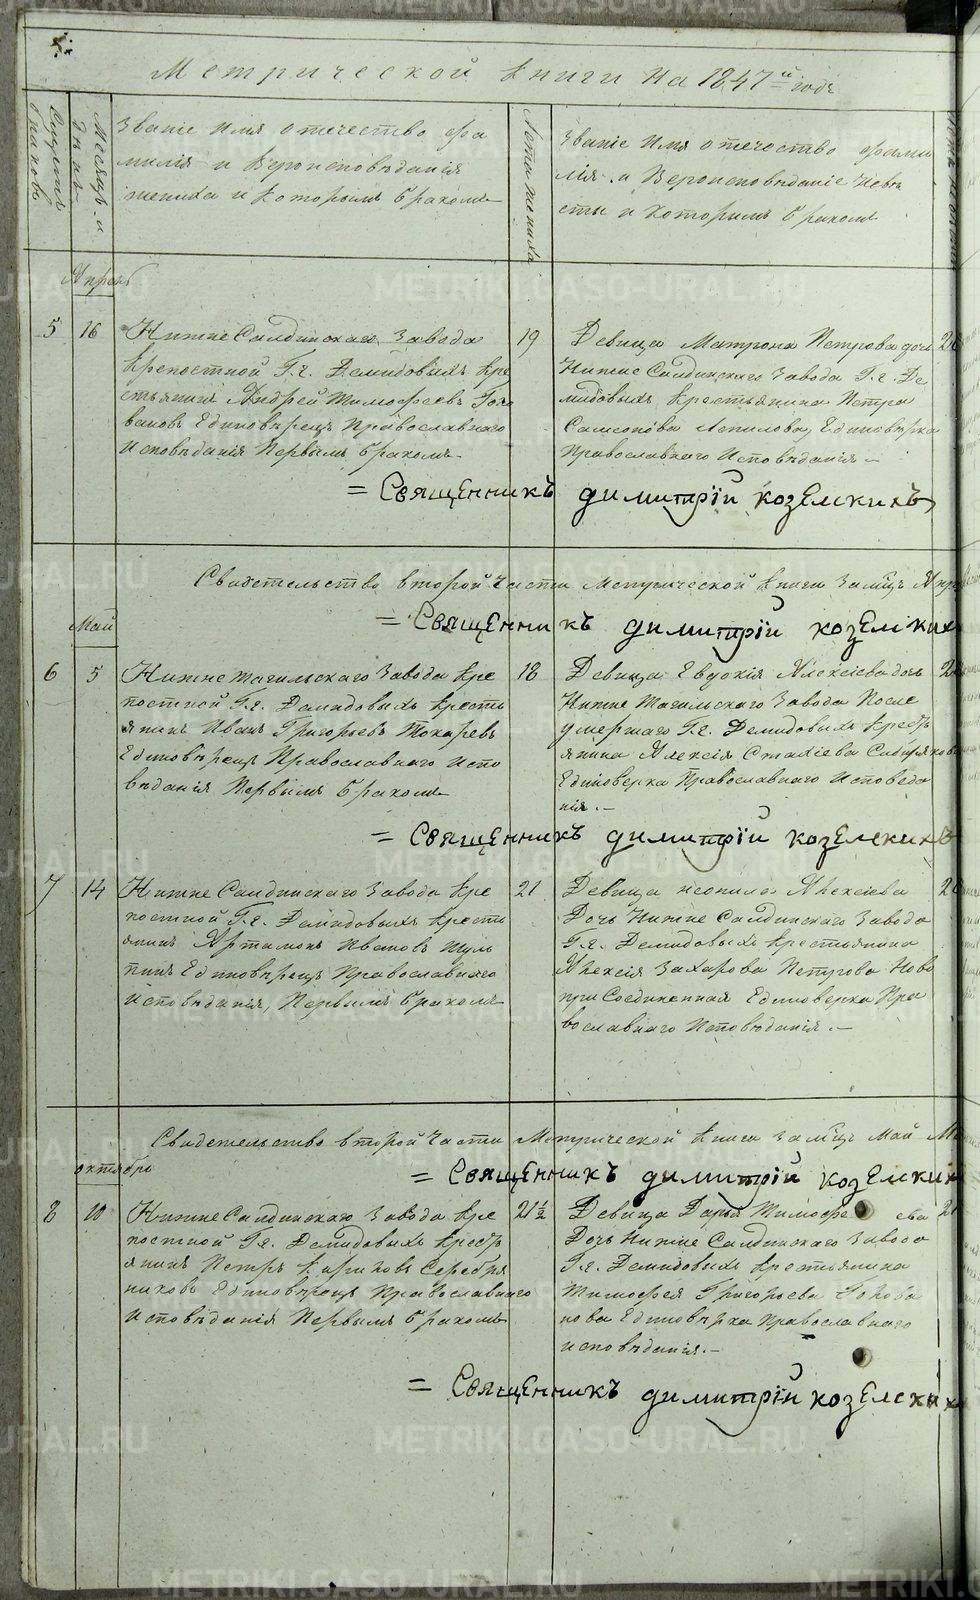 Метрической книги на 1847й годъ
Счетъ браковъ
Месяцъ и день
Званіе имя отечество фа
милія и вероисповѣданія
жениха и которымъ бракомъ
Лета жениха
Званіе имя отечество фами
лія и вероисповѣданіе неве
сты и которымъ бракомъ
Лета невесты
Апрель
5
16
Нижне Салдинскаго завода
крепостной Г.г. Демидовыхъ кре
стьянинъ Андрей Тимофеевъ Голо
вановъ Единовѣрецъ Православнаго
исповѣданія Первымъ бракомъ
19
Девица Матрона Петрова дочь
Нижне Салдинскаго завода Г.г. Де
мидовыхъ крестьянина Петра
Самсонова Единоверка
Православнаго исповѣданія
= Священникъ Димитрій Козелскихъ
Свидетельство второй части метрической книги за мцъ Апре
= Священникъ Димитрій Козелских
Май
6
5
Нижне тагильскаго завода кре
постной Г.г. Демидовыхъ кресть
янинъ Иванъ Григорьевъ Токаревъ
Единовѣрецъ Православнаго испо
вѣданія Первымъ бракомъ
18
Девица Евдокія Алексіева дочь
Нижне Тагильскаго завода После
умершаго Г.г. Демидовыхъ кресть
янина Алексія
Единоверка Православнаго исповеда
нія.
= Священникъ Димитрій Козелскихъ
7
14
Нижне Салдинскаго завода кре
постной Г.г. Демидовыхъ кресть
янинъ Артамонъ Ивановъ Шуль
пинъ Единовѣрецъ православнаго
исповѣданія, Первымъ бракомъ
21
Девица неонила Алексіева
Дочь Нижне Салдинскаго завода
Г.г. Демидовыхъ крестьянина
Алексія Захарова Петрова Ново
присоединенная Единоверка Пра
вославнаго исповѣданія.
Свидетельство второй части Метрической книги за мцъ Май
= Священникъ Димитрій Козелских
октябрь
8
10
Нижне Салдинскаго завода кре
постной Г.г. Демидовыхъ кресть
янинъ Петръ Карповъ Серебря
никовъ Единовѣрецъ Православнаго
исповѣданія Первымъ бракомъ
21½
Девица Дарья Тимофеева
Дочь Нижне Салдинскаго завода
Г.г. Демидовыхъ крестьянина
Тимофея Григорьева Голова
нова Единовѣрка православнаго
исповѣданія.
= Священникъ Димитрій Козелских
METRIKI.GASO-URAL.RU